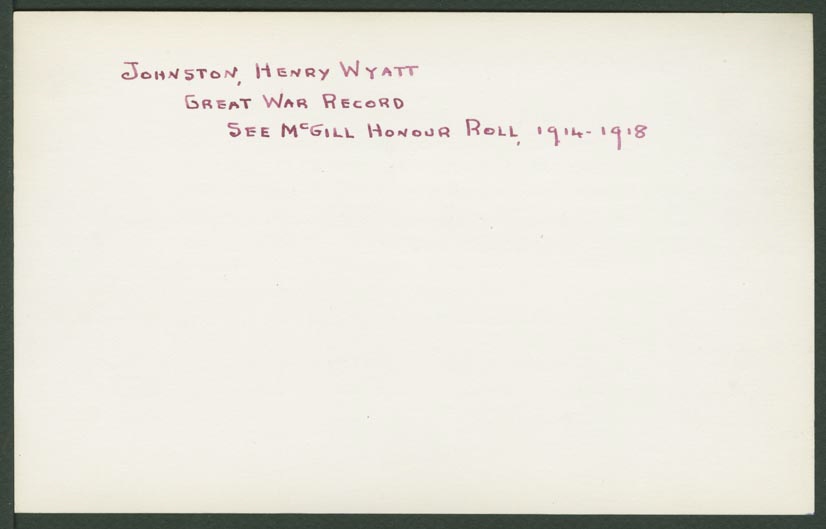 Johnston, Henry Wyatt
Great War Record
See McGill Honour Roll, 1914-1918